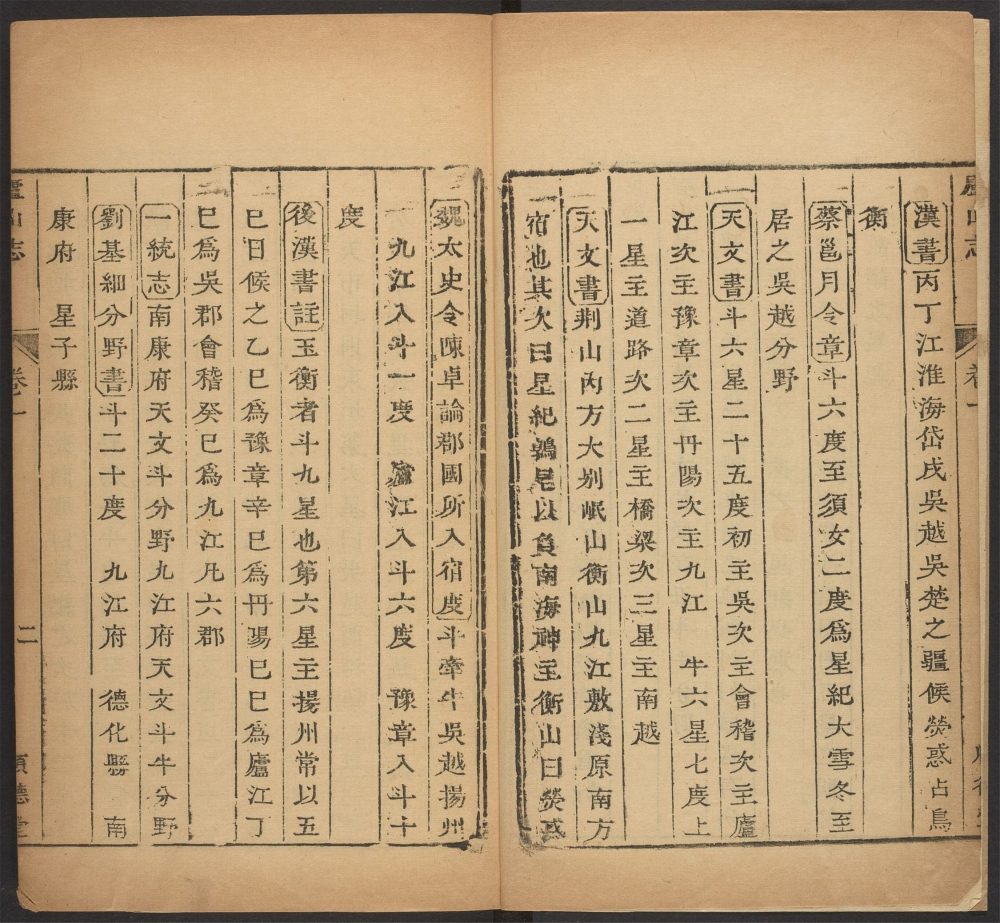 漢書丙丁江淮海岱戌吳越吳楚之疆候熒惑占鳥
衡
蔡邕月令章斗六度至須女二度爲星紀大雪冬至
居之吳越分野
天文書斗六星二十五度初主吳次主會稽次主廬
江次主豫章次主丹陽次主九江 牛六星七度上
一星主道路次二星主橋梁次三星主南越
天文書荆山內方大别岷山衡山九江敷淺原南方
宿也其次曰星紀鶉尾以負南海神主衡山曰熒惑
魏太史令陳卓論郡國所入宿度斗牽牛吳越揚州
九江入斗一度 廬江入斗六度 豫章入斗十
度
後漢書註玉衡者斗九星也第六星主揚州常以五
巳日候之乙巳爲豫章辛巳爲丹陽巳巳爲廬江丁
巳爲吳郡會稽癸巳爲九江凡六郡
一統志南康府天文斗分野九江府天文斗牛分野
劉基細分野書斗二十度 九江府 德化縣 南
康府 星子縣
廬山志 卷一 二 順德堂